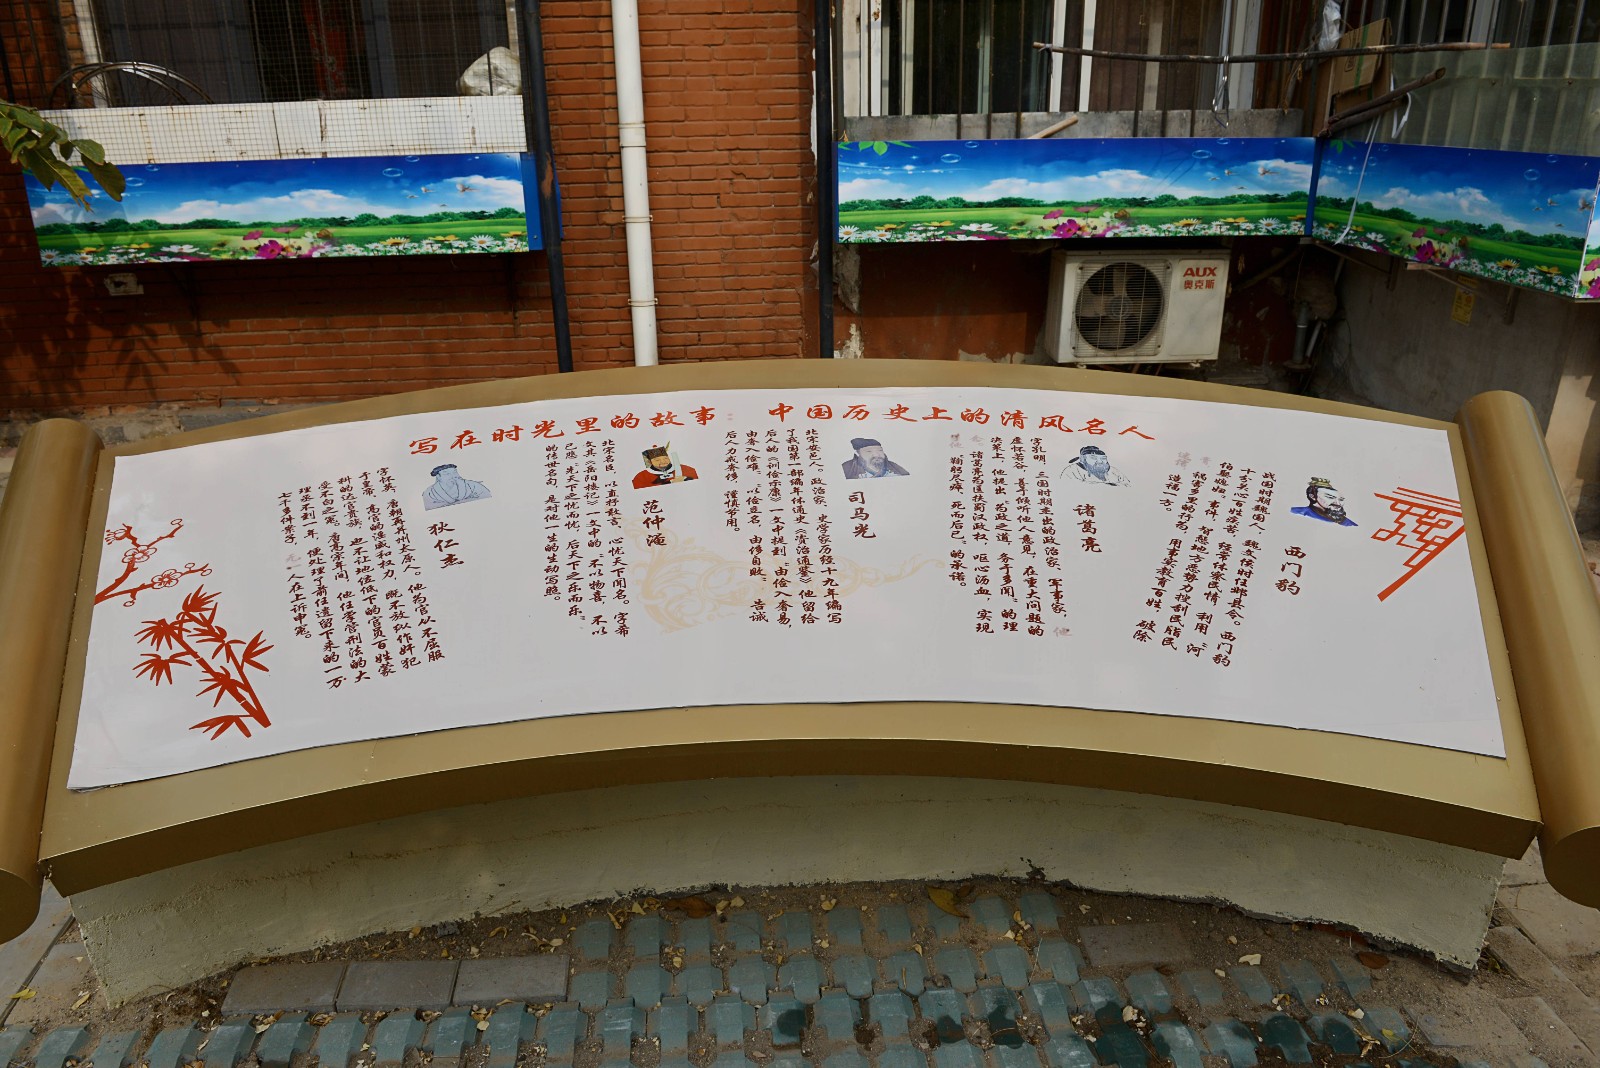 写在时光里的故事 中国历史上的清风名人
西门豹
战国时期魏国人，魏文侯时任邺县令。西门豹
十分关心百姓疾苦，经常体察民情，利用“河
伯娶媳妇”事件，智惩地方恶势力搜刮民脂民
膏、祸害乡里的行为，用事实教育百姓，破除
迷信，造福一方。
诸葛亮
字孔明，三国时期杰出的政治家、军事家，他
虚怀若谷，善于倾听他人意见，在重大问题的
决策上，他提出“为政之道，务于多闻”的理
念。诸葛亮为匡扶蜀汉政权，呕心沥血，实现
“鞠躬尽瘁，死而后已”的承诺。
司马光
北宋安邑人。政治家、史学家历经十九年编写
了我国第一部编年体通史《资治通鉴》他留给
后人的《训俭示康》一文中提到“由俭入奢易，
由奢入俭难”、“以俭立名，由侈自败”，告诫
后人力戒奢侈，谨慎节用。
范仲淹
北宋名臣，以直抒敢言、心忧天下闻名。字希
文其《岳阳楼记》一文中的“不以物喜，不以
己悲”“先天下之忧而忧，后天下之乐而乐”
的传世名句，是对他一生的生动写照。
狄仁杰
字怀英，唐朝并州太原人。他为官从不屈服
于皇帝、高官的淫威和权力，既不放纵作奸犯
科的达官贵族，也不让地位低下的官员百姓蒙
受不白之冤。唐高宗年间，他任掌管刑法的大
理丞不到一年，便处理了前任遗留下来的一万
七千多件案子，无一人在上诉申冤。
AUX
奥克斯